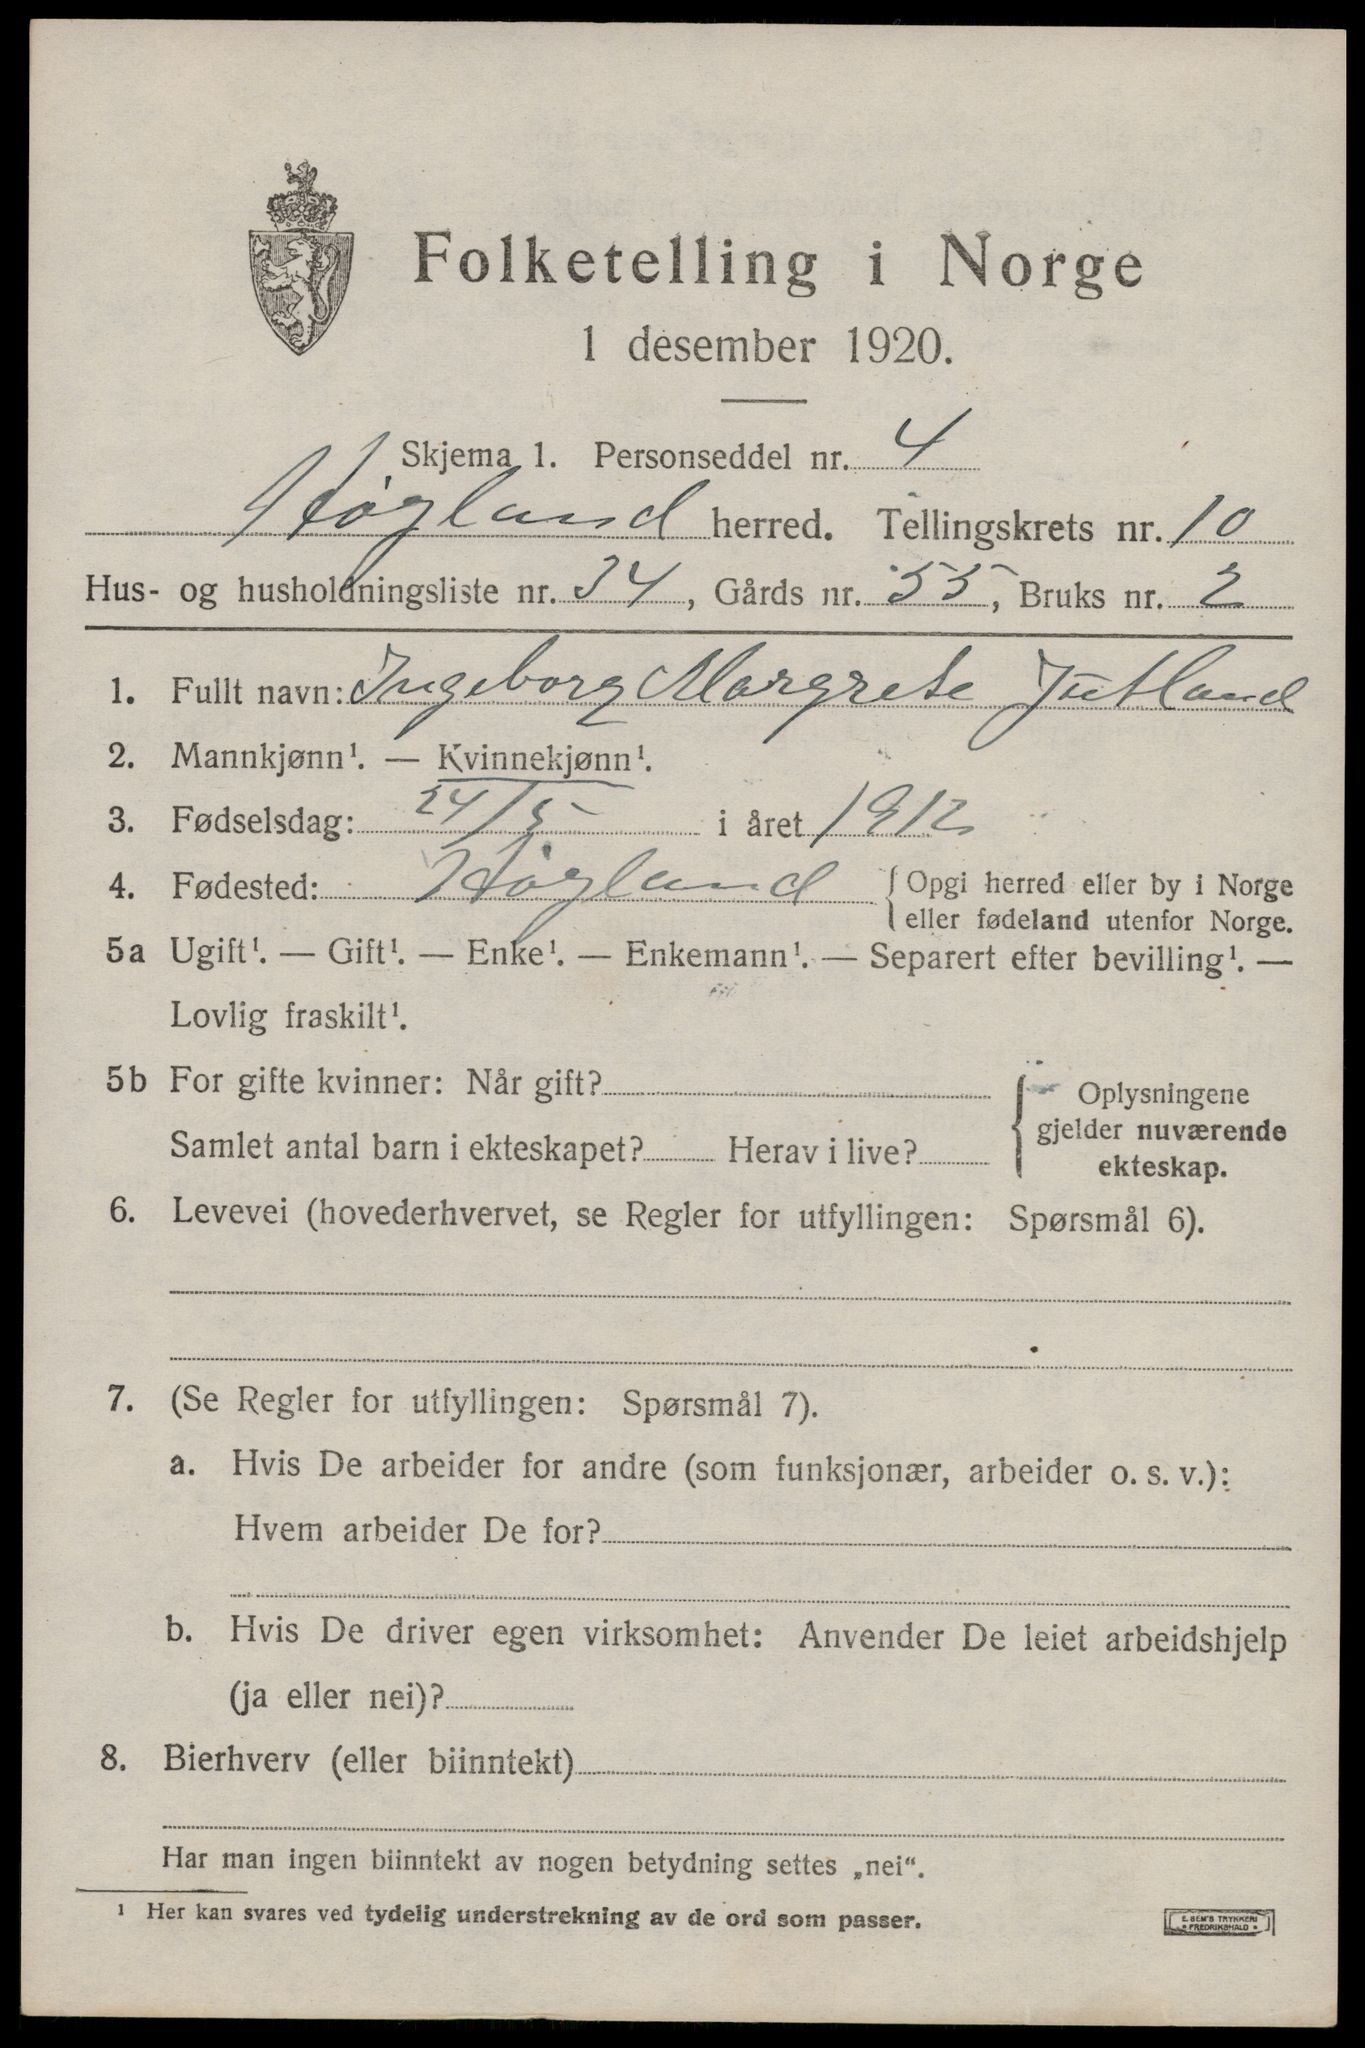 Folketelling i Norge
1 desember 1920.
Skjema 1. Personseddel nr. 4
Høgland herred. Tellingskrets nr. 10
Hus- og husholdningsliste nr. 34, Gårds nr. 55, Bruks nr. 2
1. Fullt navn: Ingeborg Margrete Jutland
2. Mannkjønn¹. — Kvinnekjønn¹.
3. Fødselsdag: 24/5 i året 1912
4. Fødested: Høgland {Opgi herred eller by i Norge
eller fødeland utenfor Norge.
5a Ugift¹. — Gift¹. — Enke¹. — Enkemann¹. — Separert efter bevilling¹. —
Lovlig fraskilt¹.
5b For gifte kvinner: Når gift?
Samlet antal barn i ekteskapet? Herav i live?
{ Oplysningene
gjelder nuværende
ekteskap.
6. Levevei (hovederhvervet, se Regler for utfyllingen: Spørsmål 6).
7. (Se Regler for utfyllingen: Spørsmål 7).
a. Hvis De arbeider for andre (som funksjonær, arbeider o. s. v.):
Hvem arbeider De for?
b. Hvis De driver egen virksomhet: Anvender De leiet arbeidshjelp
(ja eller nei)?
8. Bierhverv (eller biinntekt)
Har man ingen biinntekt av nogen betydning settes „nei“.
¹ Her kan svares ved tydelig understrekning av de ord som passer.
E. SEM'S TRYKKERI
• FREDRIKSHALD •